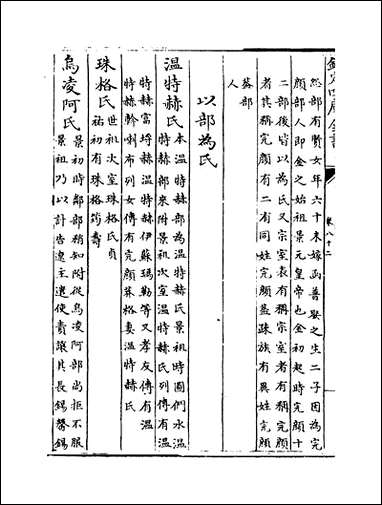 欽定四庫全書
卷八十二
忽部有賢女年六十未嫁函普娶之生二子因為完
顔部人即金之始祖景元皇帝也金初起時完顔十
二部後皆以為氏又宗室表有稱宗室者有稱完顔
者其稱完顔有二有同姓完顔蓋疎族有異姓完顔
蓋部
人
以部為氏
溫特赫氏
本溫特赫部為溫特赫氏景祖時圖們水溫
特赫部來附景祖次室溫特赫氏列傳有溫
特赫富埒赫溫特赫伊蘇瑪勒等又孝友傳有溫
特赫斡喇布列女傳有完顔莽格妻溫特赫氏
珠格氏
世祖次室珠格氏貞
祐初有珠格筠壽
烏凌阿氏
景祖時鄰部稍知附從烏凌阿部尚拒不服
景祖乃以計告遼主遼使責讓其長錫馨錫